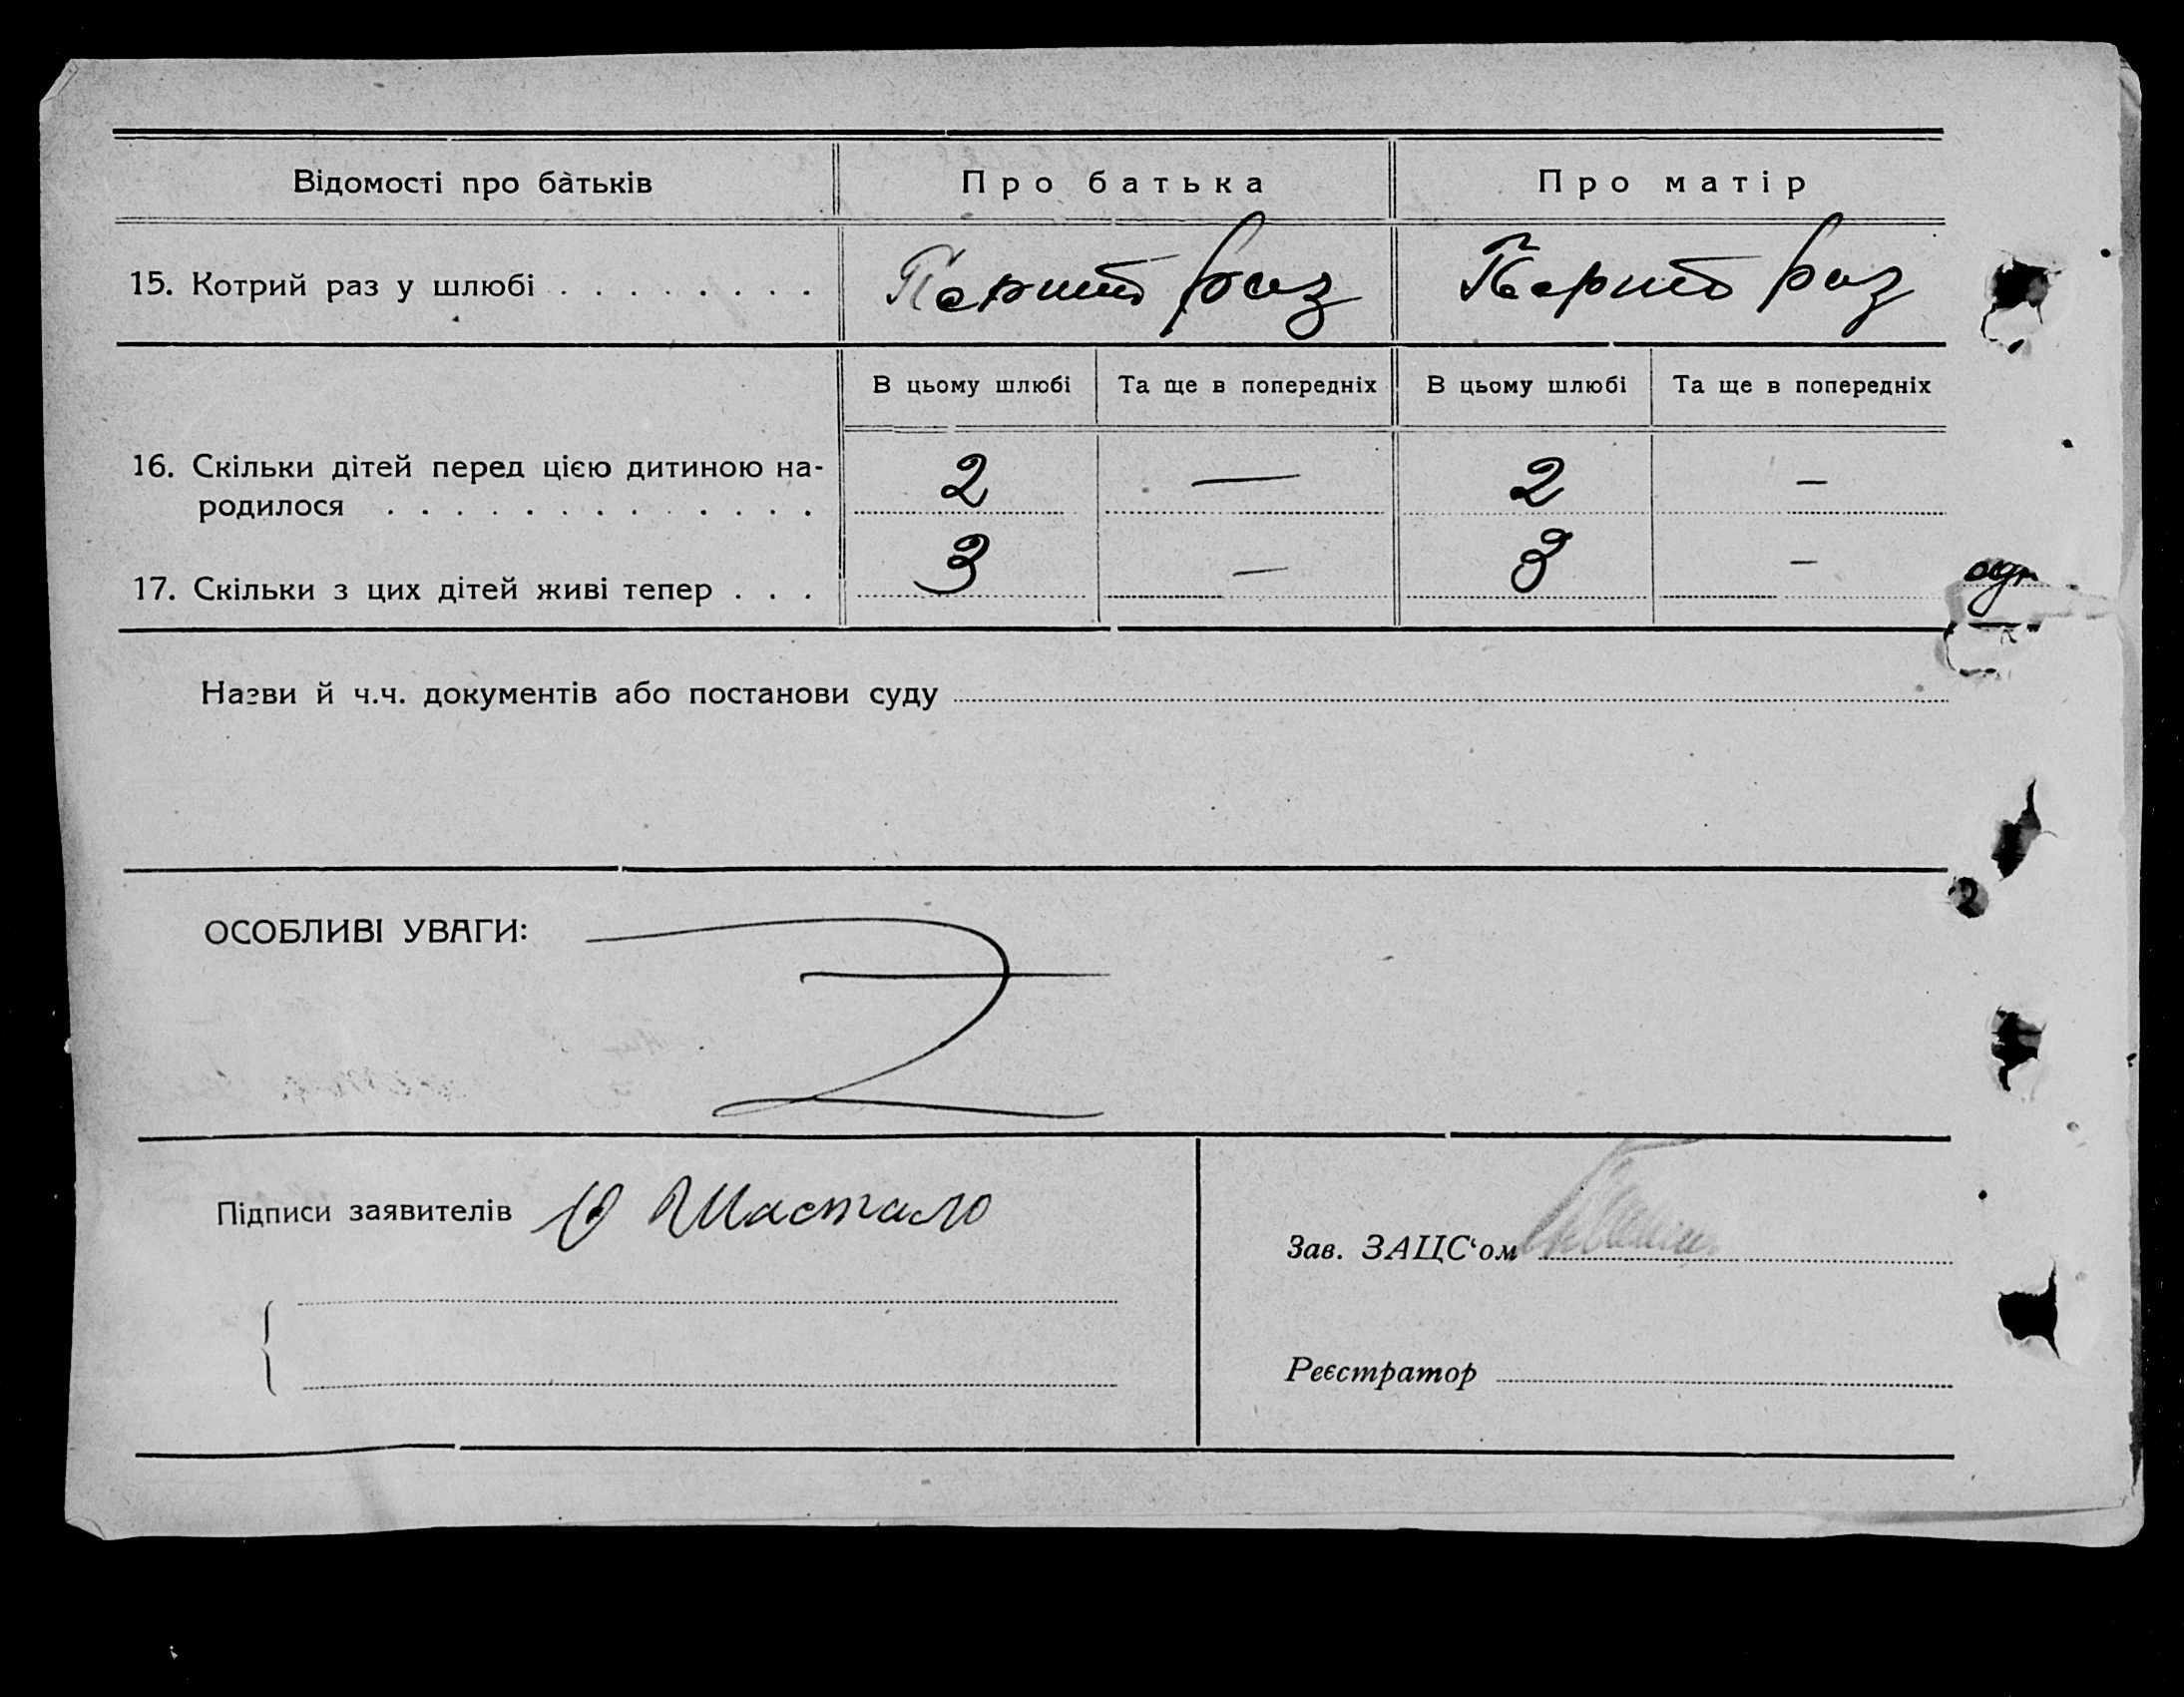 Відомості про батьків Про батька Про матір
15. Котрий раз у шлюбі . . . . . . . . Перший раз Перший раз
В цьому шлюбі Та ще в попередніх В цьому шлюбі Та ще в попередніх
16. Скільки дітей перед цією дитиною на-
родилося . . . . . . . . . . . . . 2 — 2 —
17. Скільки з цих дітей живі тепер . . . 3 — 3 —
Назви й ч.ч. документів або постанови суду
ОСОБЛИВІ УВАГИ:
Підписи заявителів Шастало
Зав. ЗАЦС‘ом
Реєстратор